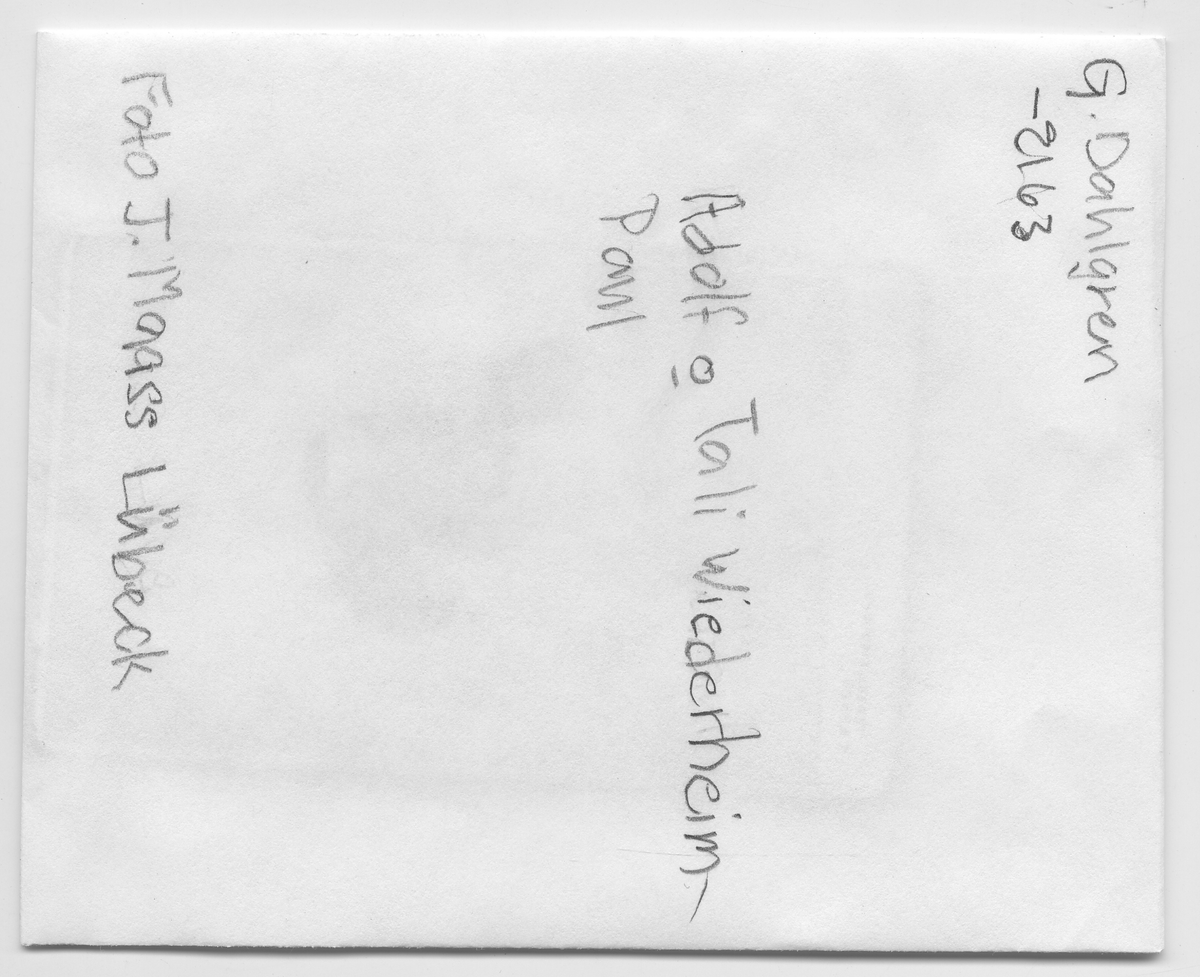 G. Dahlgren
-2163
Adolf o Tali Wiederheim-
Paul
Foto J. Maass Lübeck